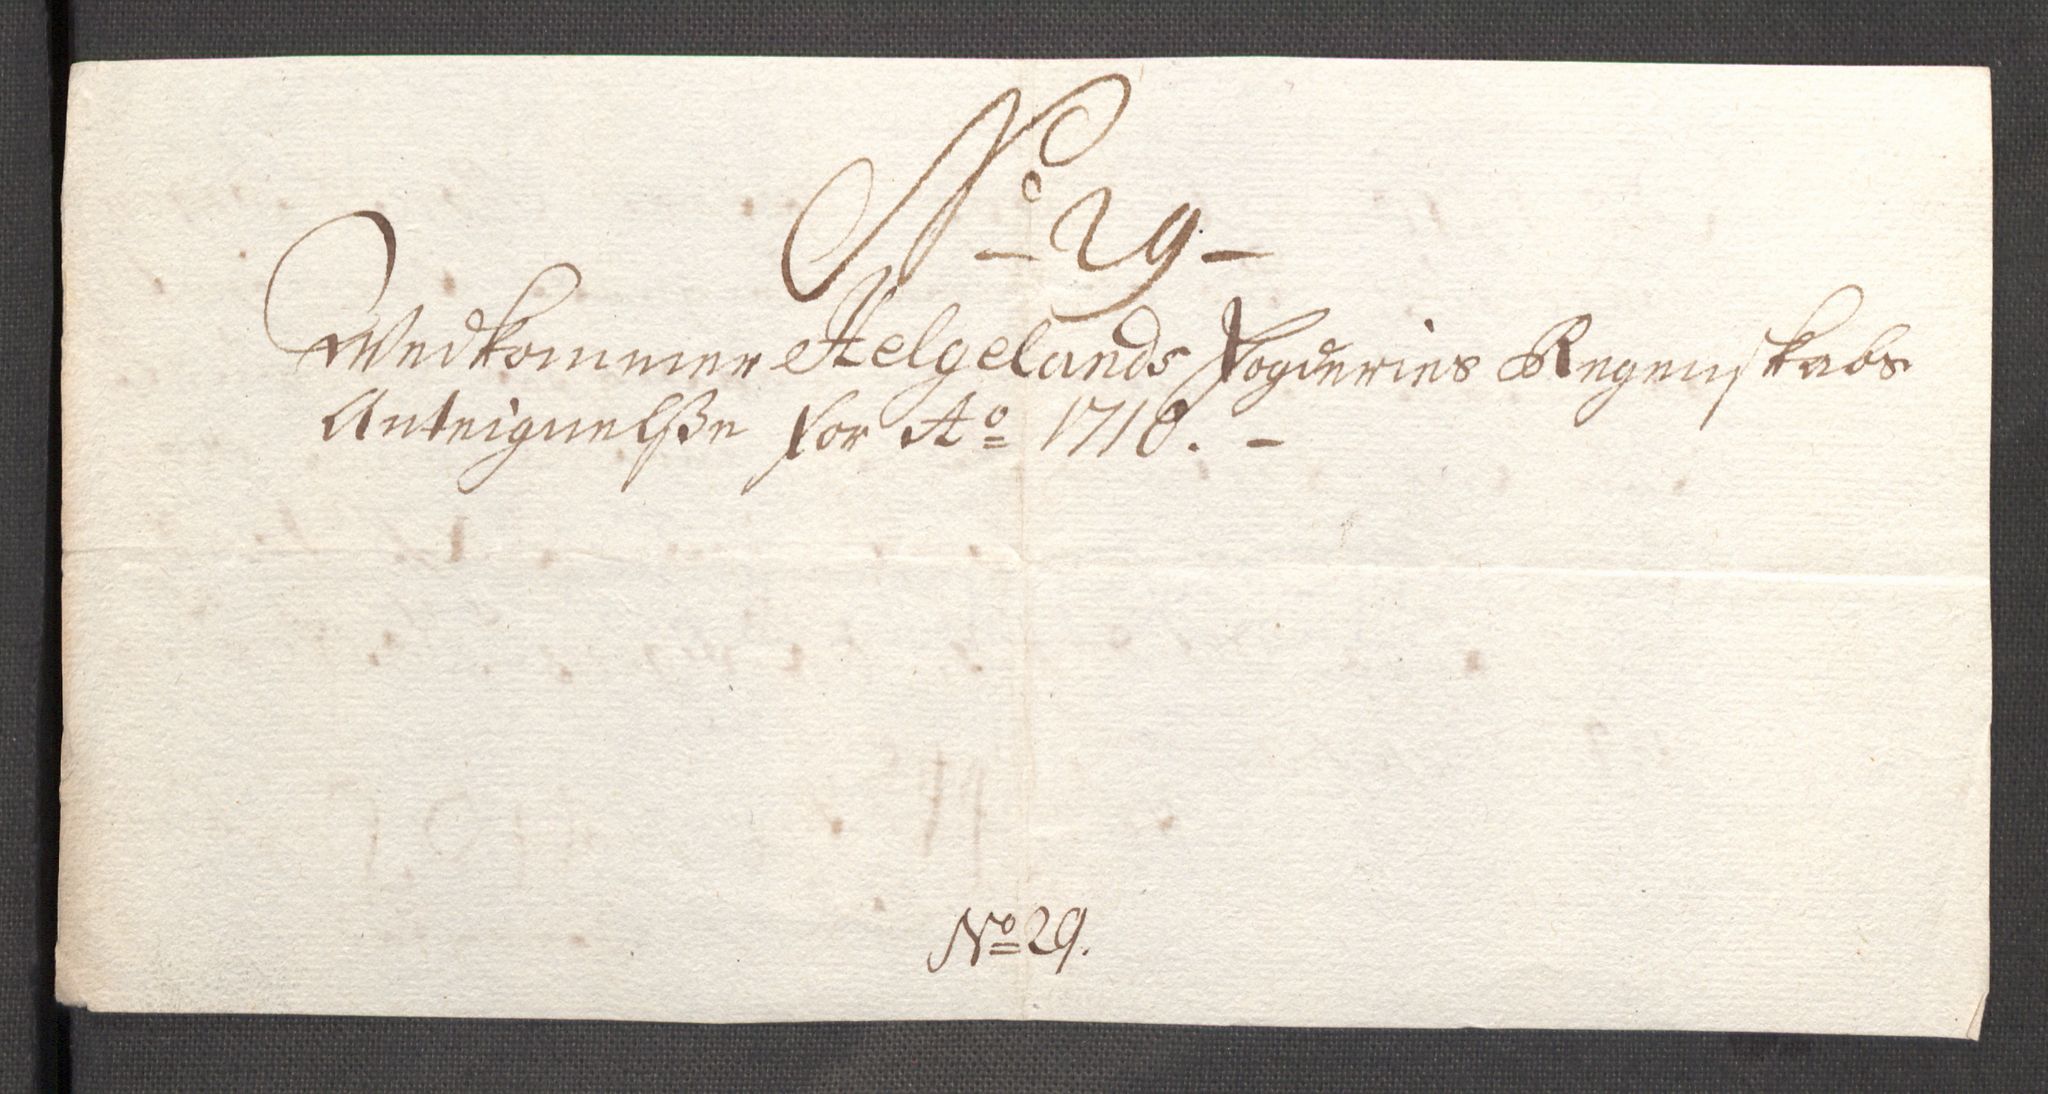 No 29
Wedkommer Helgelands Fogderies Regenskabs
Anteignelsse for Ao 1710.
No 29.